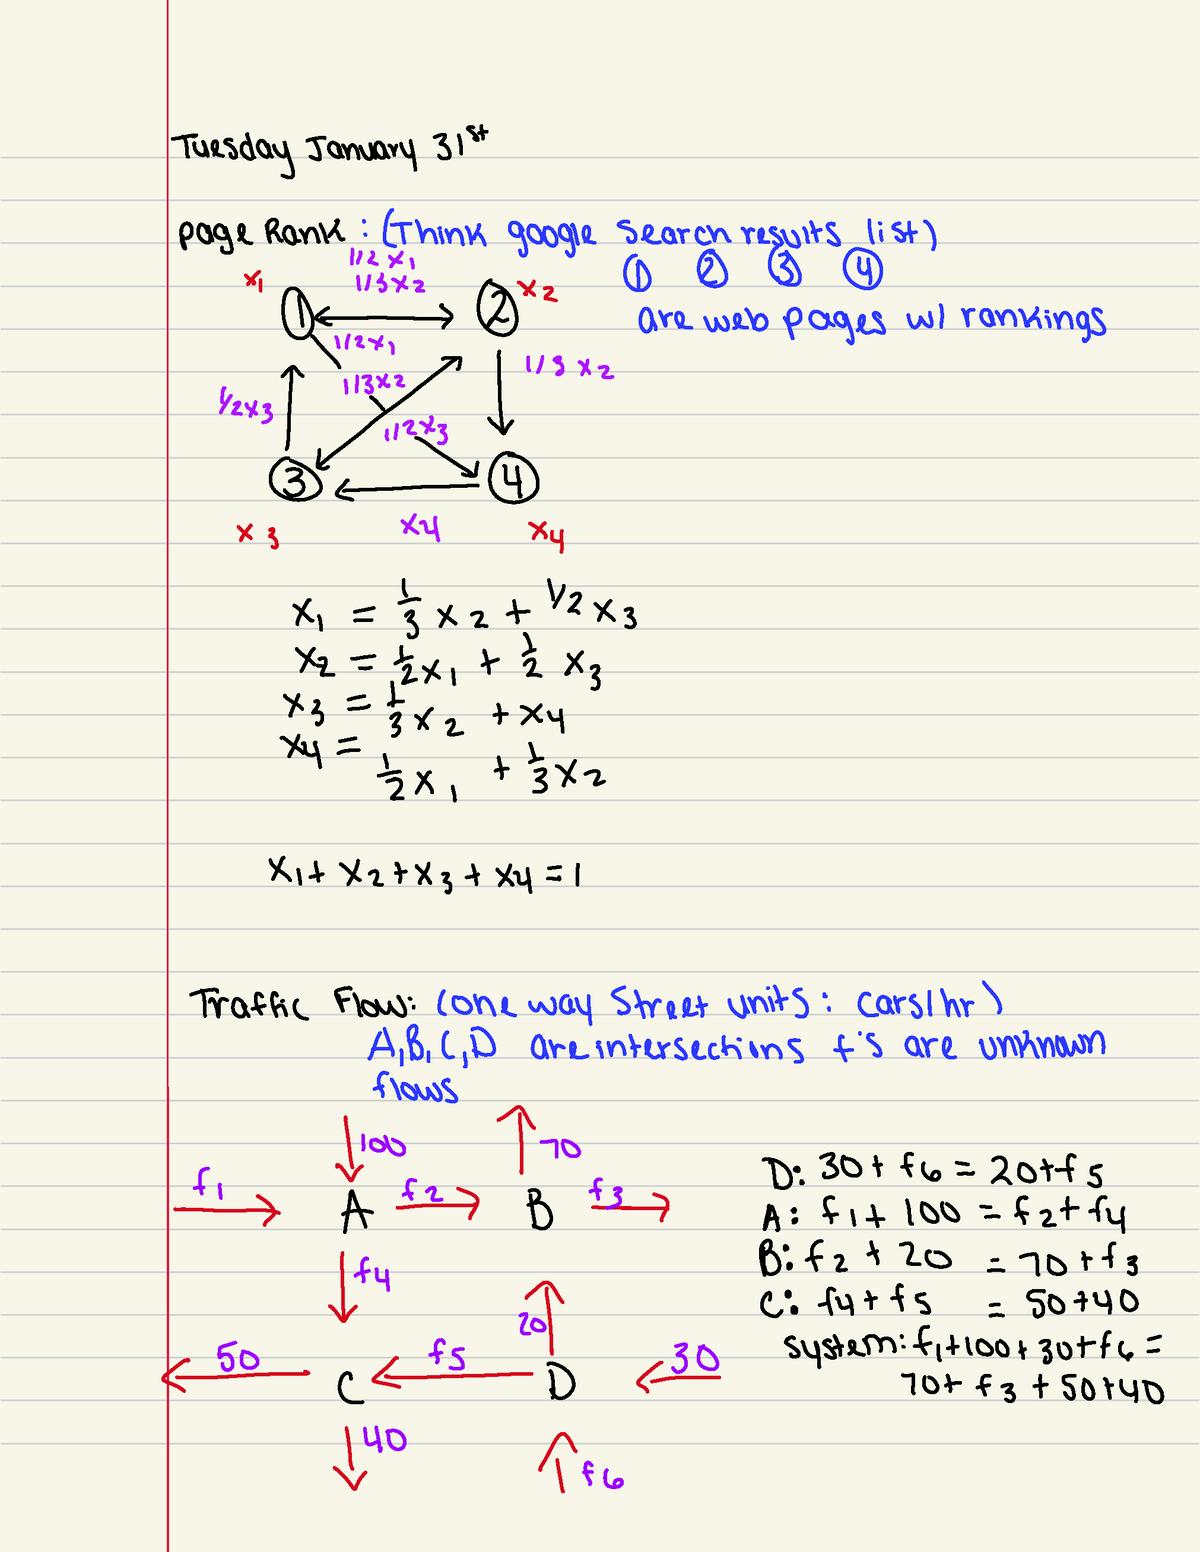 Tuesday January 31st
page Rank : (Think google search results list)
① ② ③ ④
are web pages w/ rankings
1/2 x1
1/3 x2
x1
①
②
x2
1/2 x1
1/3 x2
1/3 x2
1/2 x3
1/2 x3
③
④
x3
x4
x4
x1 = 1/3 x2 + 1/2 x3
x2 = 1/2 x1 + 1/2 x3
x3 = 1/3 x2 + x4
x4 = 1/2 x1 + 1/3 x2
x1 + x2 + x3 + x4 = 1
Traffic Flow: (one way street units: cars/hr)
A, B, C, D are intersections f's are unknown
flows
100
70
f1
A
f2
B
f3
f4
20
50
C
f5
D
30
40
f6
D: 30 + f6 = 20 + f5
A: f1 + 100 = f2 + f4
B: f2 + 20 = 70 + f3
C: f4 + f5 = 50 + 40
system: f1 + 100 + 30 + f6 =
70 + f3 + 50 + 40